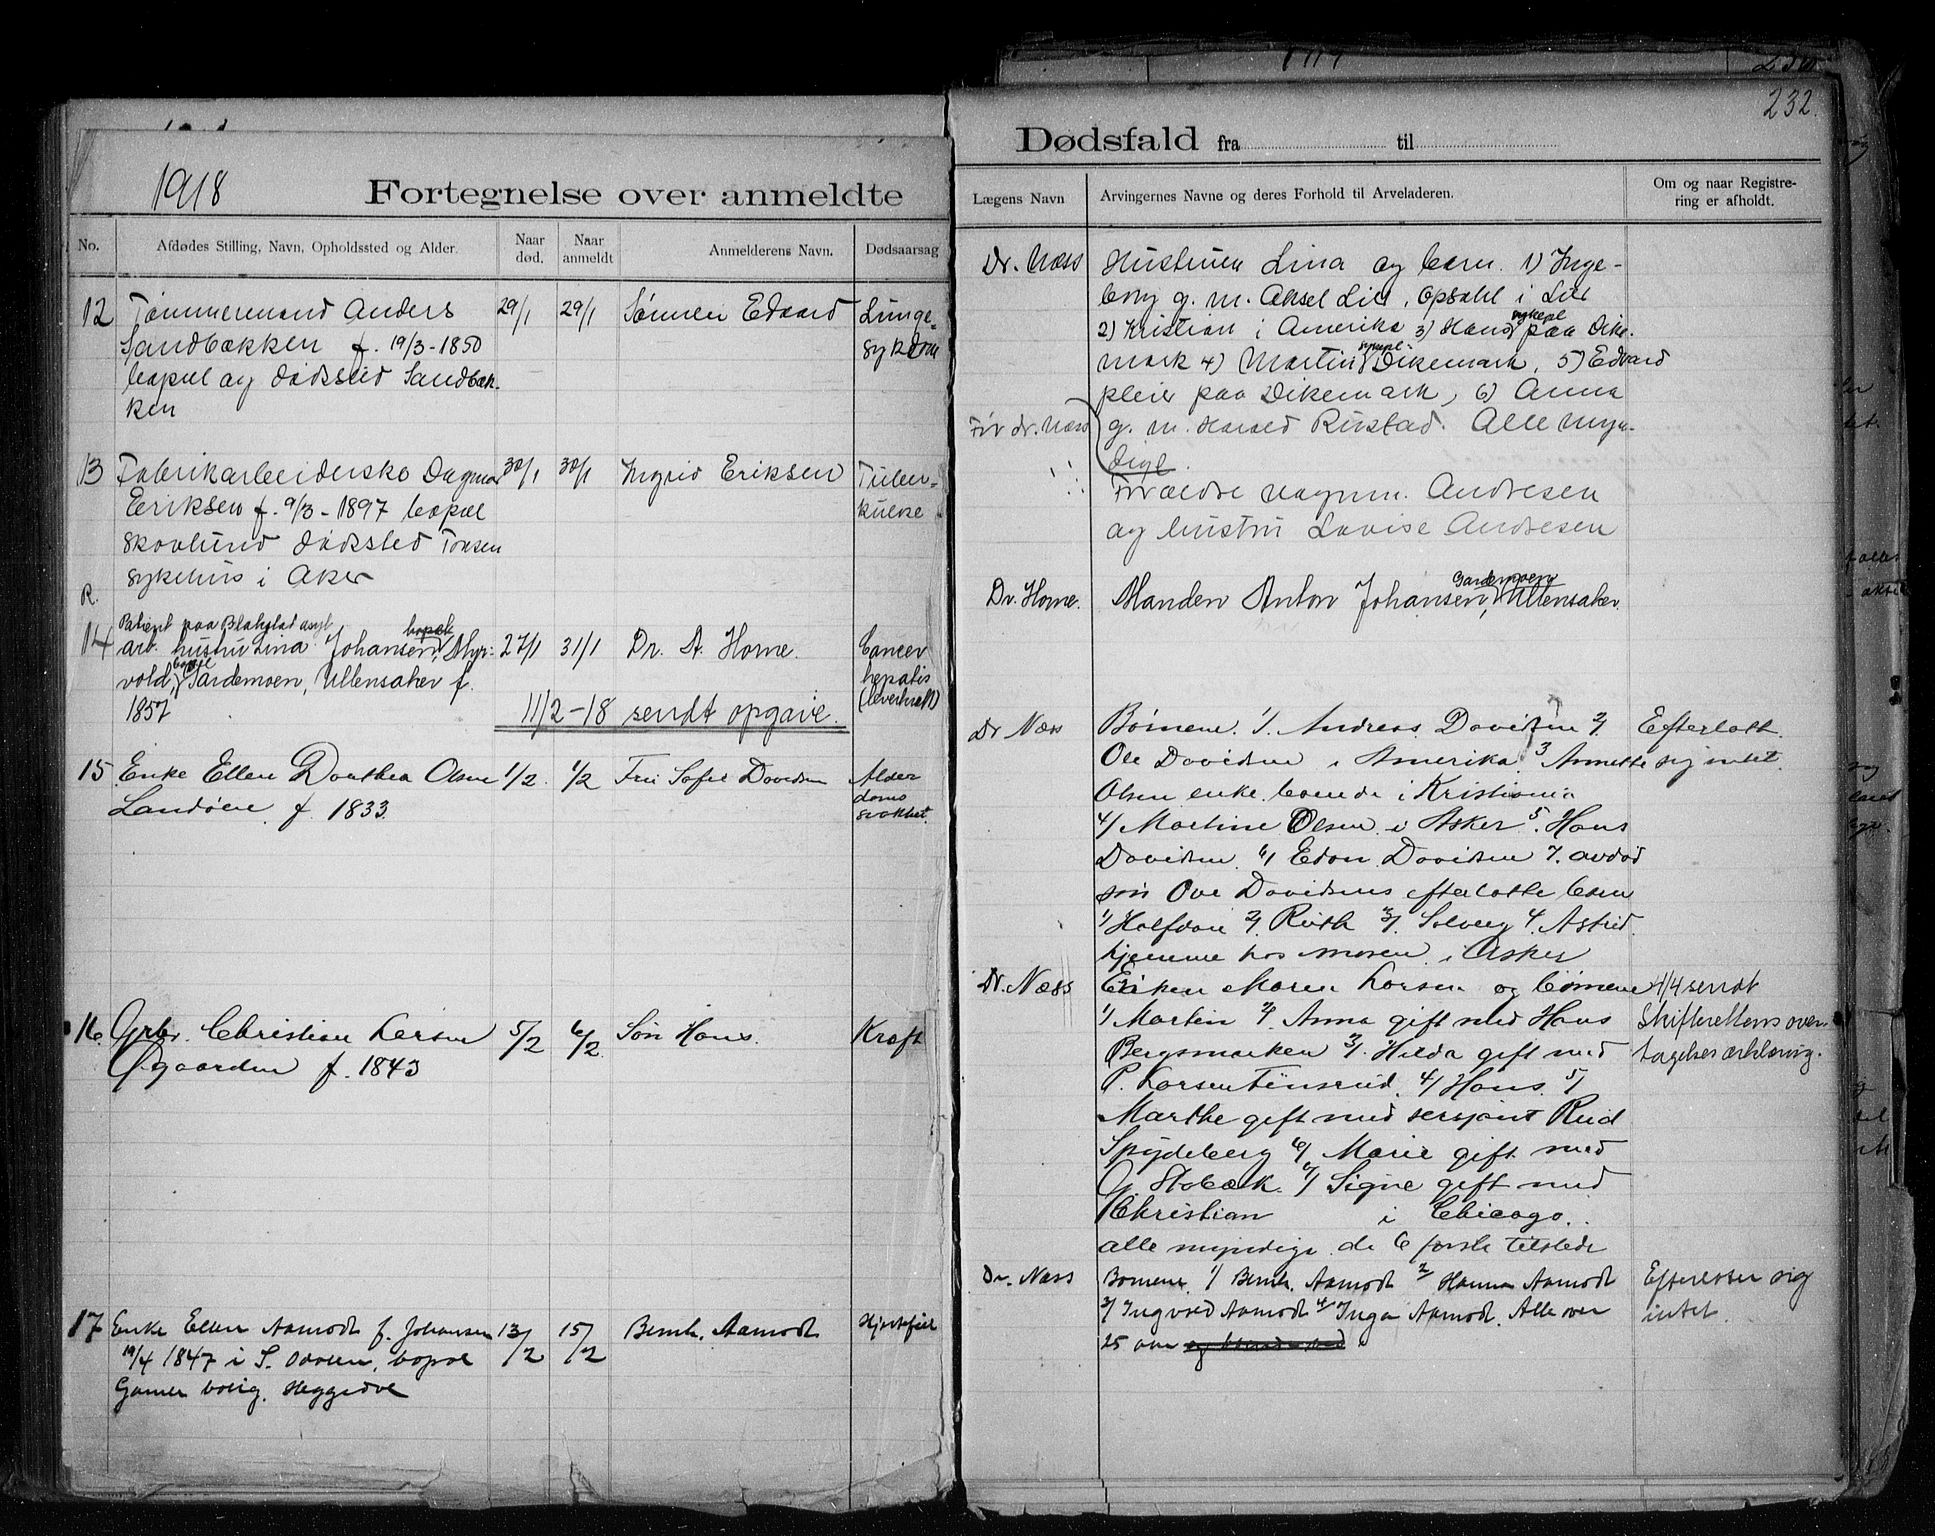 232.
1918
Fortegnelse over anmeldte
No.
Afdødes Stilling, Navn, Opholdssted og Alder.
Naar død.
Naar anmeldt
Anmelderens Navn.
Dødsaarsag
12
Tømmermand Anders
Sandbækken f. 19/3-1850
bopæl og dødssted Sandbæk-
ken
29/1
29/1
Sønnen Edvard
Lunge-
sykdom
13
Fabrikarbeiderske Dagmar
Eriksen f. 9/3-1897 bopæl
Skovlund dødssted Tonsen
sykehus i Aker
30/1
30/1
Ingrid Eriksen
Tuber-
kulose
R.
14
Patient paa Blakstad asyl
arb. hustru Lina Johansen, Myr-
vold, bopæl Gardemoen, Ullensaker f.
1857
27/1
31/1
Dr. A. Horne.
Cancer
hepatis
(leverkræft)
11/2-18 sendt opgave.
15
Enke Ellen Dorthea Olsen
Landøen f. 1833
1/2
1/2
Fru Sofie Davidsen
Alder
doms
svakhet.
16.
Grbr. Christian Larsen
Øgaarden f. 1843
5/2
6/2
Søn Hans.
Kræft
17
Enke Ellen Aamodt f. Johansen
19/4 1847 i S. Odalen, bopæl
Gamer bolig. Heggedal
13/2
15/2
Bernh. Aamodt
Hjertefeil
Dødsfald fra til
Lægens Navn
Arvingernes Navne og deres Forhold til Arveladeren.
Om og naar Registre-
ring er afholdt.
Dr. Næss
Hustruen Lina og børn. 1) Inge-
borg g. m. Aksel Lill, Opsahl i Lier
2) Kristian i Amerika 3) Hans sykepl paa Dike-
mark 4) Martin sykepl. Dikemark, 5) Edvard
pleier paa Dikemark, 6) Anna
g. m. Harald Rustad. Alle myn-
dige.
For dr. Næss
Forældre vognm. Andresen
og hustru Lovise Andresen
Dr. Horne.
Manden Anton Johansen, Gardemoen Ullensaker
Dr Næss
Børnene. 1/. Andreas Davidsen 2/.
Ole Davidsen i Amerika. 3 Annette
Olsen enke boende i Kristiania
4/ Martine Olsen i Asker 5. Hans
Davidsen 6/ Edvn Davidsen 7. avdød
søn Ove Davidsens efterlatte børn
1/ Halfdan 2/. Ruth 3/. Solveig 4. Astrid
hjemme hos moren i Asker
Efterlatt
sig intet.
Dr. Næss
Enken Maren Larsen og børnene
1/ Martin 2/. Anna gift med Hans
Bergsmarken 3/. Hilda gift med
P. Larsen Tønsrud 4/ Hans. 5/
Marthe gift med sersjant Rud
Spydeberg 6/ Marie gift med
G. Hobæk. 7/ Signe gift med
Christian i Chicago.
alle myndige de 6 første tilstede
4/4 sendt
Skifterettens over-
tagelseserklæring.
Dr. Næss
Børnene. 1/ Bernh. Aamodt 2/ Hanna Aamodt
3/ Ingvald Aamodt 4/ Inga Aamodt. Alle over
25 aar
Efterlater sig
intet.